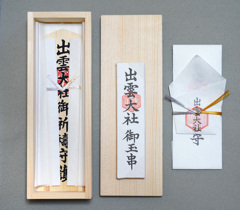 出雲大社御祈祷守護
出雲大社御玉串
出雲大社守